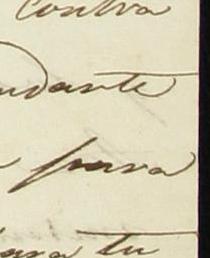 contra
ndante
para
para tu